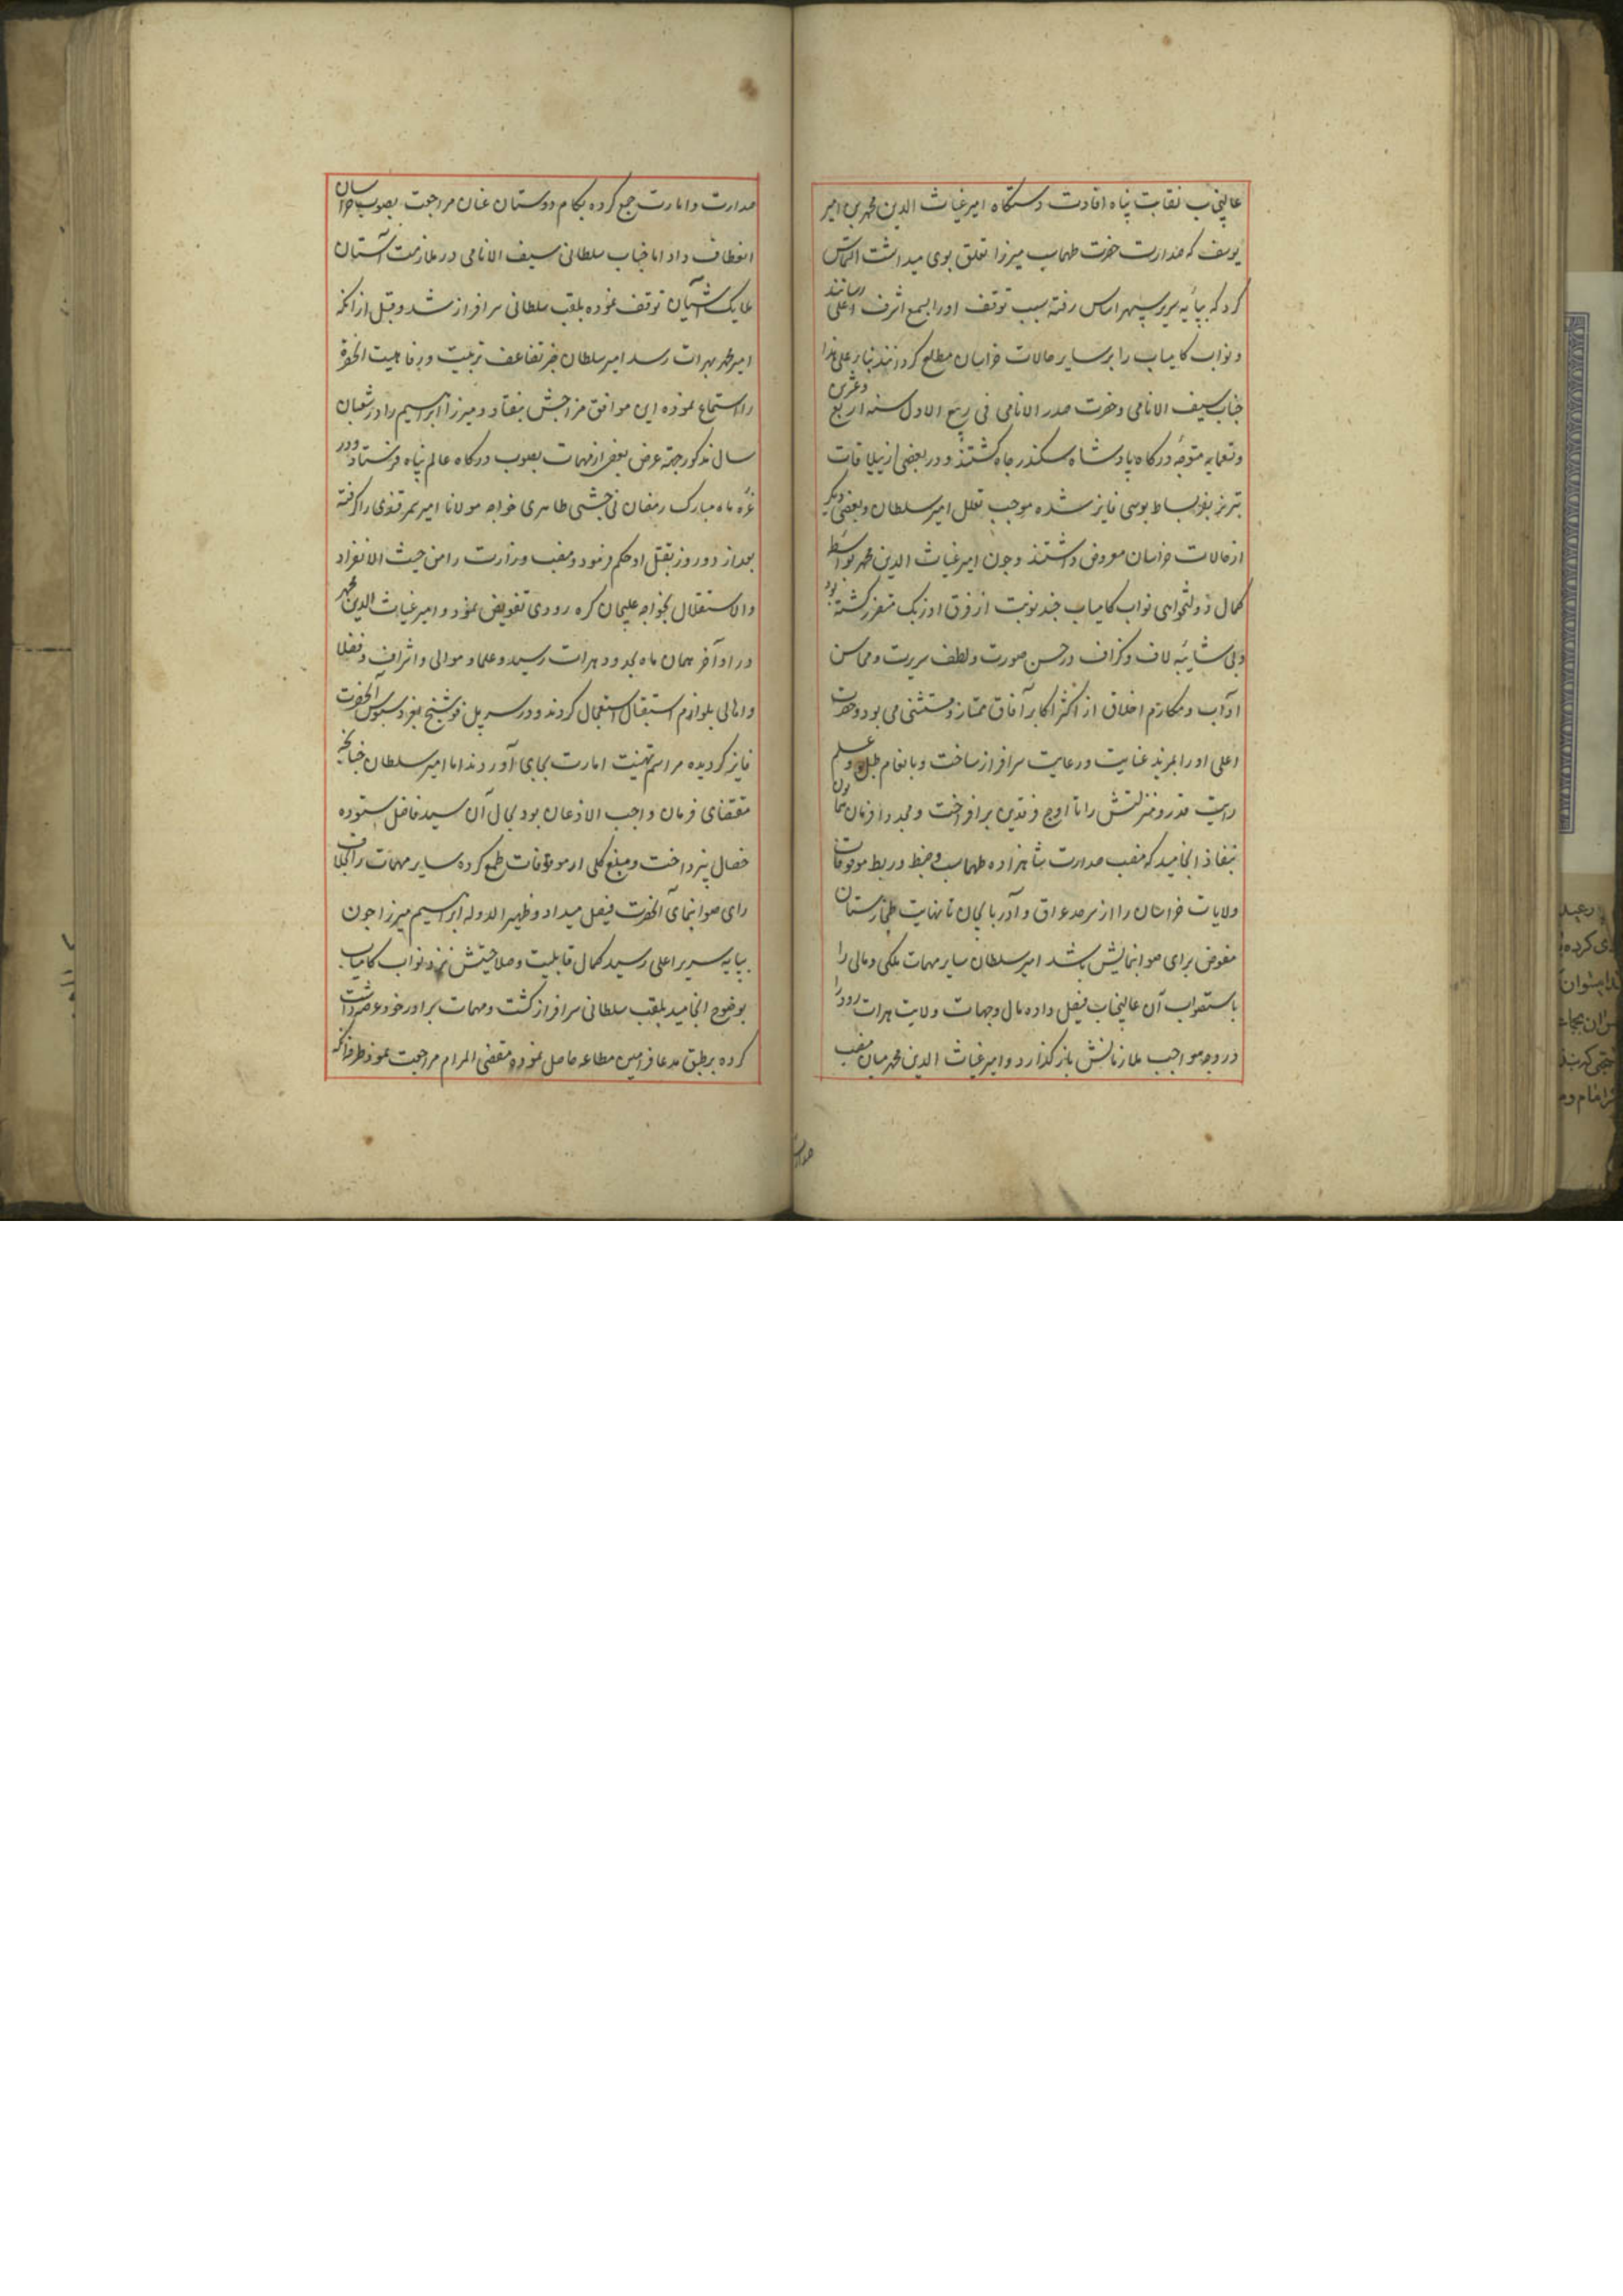 عالیجناب نقابت پناه افادت دستگاه امیر غیاث الدین محمد بن امیر
یوسف که صدارت حضرت طهماسب میرزا تعلق بوی میداشت التماس
کرد که بپایه سریر سپهر اساس رفته سبب توقف او را بسمع اشرف اعلی رسانند
و نواب کامیاب را بر سایر حالات خراسان مطلع کردانند بنا بر علی هذا
جناب سیف الانامی و حضرت صدر الانامی فی ربیع الاول سنه اربع و عشرین
و تسعمایه متوجه درکاه پادشاه سکندر جاه کشتند و در بعضی از ییلاقات
تبریز بعز بساط بوسی فایز شده موجب تعلل امیر سلطان و بعضی دیکر
از حالات خراسان معروض داشتند و چون امیر غیاث الدین محمد بواسطه
کمال دولتخواهی نواب کامیاب چند نوبت از فرق اوزبک متضرر کشته بود
و بی شایبه لاف و کزاف در حسن صورت و لطف سیرت و محاسن
آداب و مکارم اخلاق از اکثر اکابر آفاق ممتاز و مستثنی می بود و حضرت
اعلی او را بمزید عنایت و رعایت سرافراز ساخت و بانعام طبل و علم
رایت قدر و منزلتش را تا اوج فرقدین برافراخت و مجددا فرمان همایون
بنفاذ انجامید که منصب صدارت شاهزاده طهماسب و ضبط و ربط موقوفات
ولایات خراسان را از سرحد عراق و آذربایجان تا نهایت طخارستان
مفوض برای صوابنمایش باشد امیر سلطان سایر مهمات ملکی و مالی را
باستصواب آن عالیجناب فیصل داده مال و جهات ولایت هرات رود را
در وجه مواجب ملازمانش باز کذارد و امیر غیاث الدین محمد میان منصب
صدارت و امارت جمع کرده بکام دوستان عنان مراجعت بصوب خراسان
انعطاف داد اما جناب سلطانی سیف الانامی در ملازمت آستان
ملایک آشیان توقف نموده بلقب سلطانی سرافراز شد و قبل از انکه
امیر محمد بهرات رسد امیر سلطان خبر تضاعف تربیت و رفاهیت آنحضرت
را استماع نموده این موافق مزاجش نیفتاد و میرزا ابراهیم را در شعبان
سال مذکور جهة عرض بعضی از مهمات بصوب درکاه عالم پناه فرستاد و در
غره ماه مبارک رمضان بی جهتی ظاهری خواجه مولانا امیر سمرقندی را کرفته
بعد از دو روز بقتل او حکم فرمود و منصب وزارت را من حیث الانفراد
والاستقلال بخواجه کره رودی تفویض نمود و امیر غیاث الدین محمد
در اواخر همان ماه بحدود هرات رسید و علما و موالی و اشراف و فضلا
و اهالی بلوازم استقبال استعجال کردند و در سر پل فوشنج بعز دستبوس آنحضرت
فایز کردیده مراسم تهنیت امارت بجای آوردند اما امیر سلطان چنانچه
مقتضای فرمان واجب الاذعان بود بحال آن سید فاضل ستوده
خصال نپرداخت و مبلغ کلی از موقوفات طمع کرده سایر مهمات را بخلاف
رای صوابنمای آنحضرت فیصل میداد و ظهیر الدوله ابراهیم میرزا چون
بپایه سریر اعلی رسید کمال قابلیت و صلاحیتش نزد نواب کامیاب
بوضوح انجامید بلقب سلطانی سرافراز کشت و مهمات برادر خود عرضه داشت
کرده بر طبق مدعا فرامین مطاعه حاصل نموده مقضی المرام مراجعت نمود
صدارت